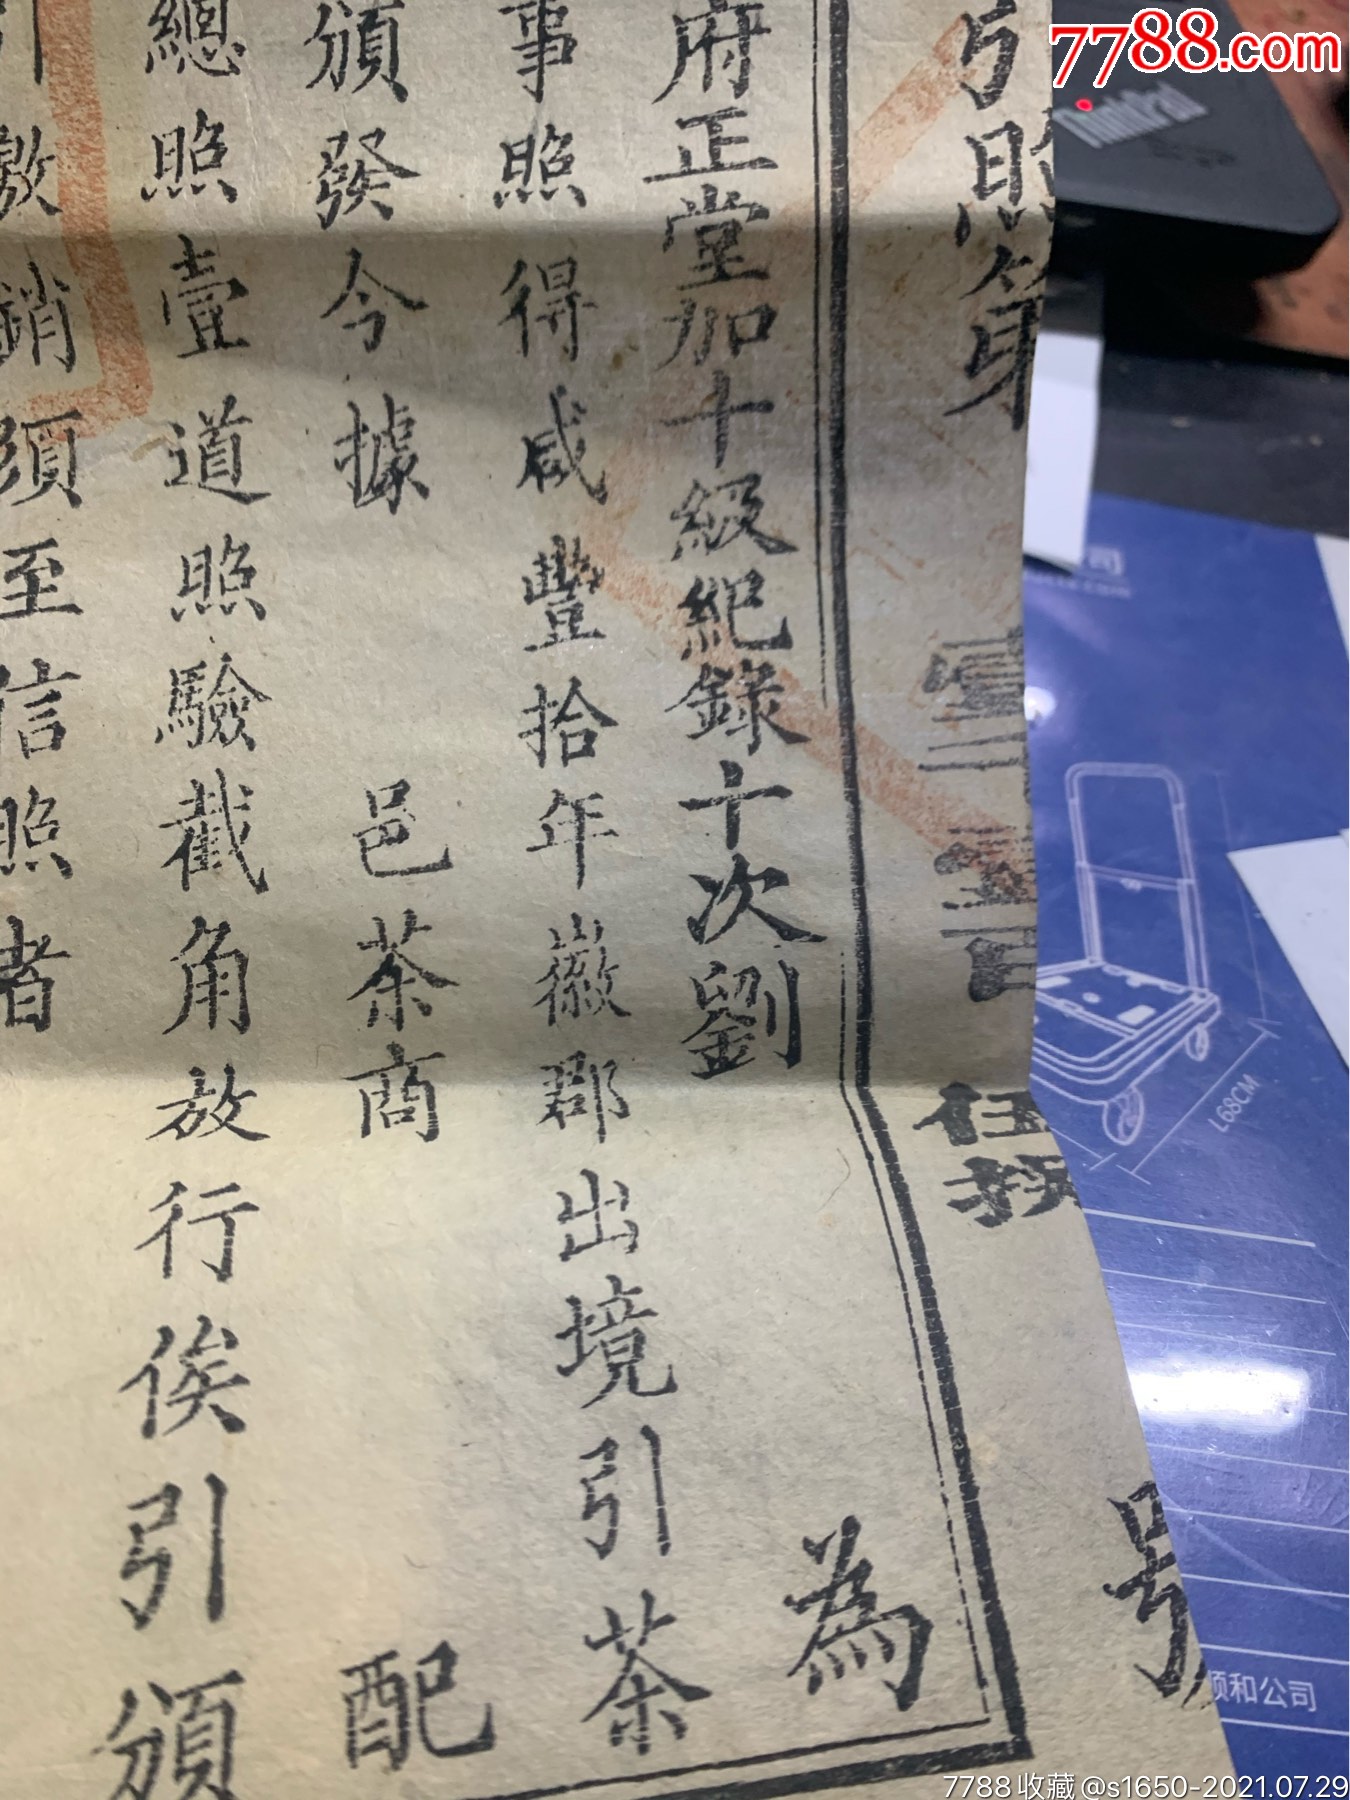 引照第
號
府正堂加十級紀錄十次劉
為
事照得咸豐拾年徽郡出境引茶
頒發今據
邑茶商
配
總照壹道照驗截角放行俟引頒
引繳銷須至信照者
7788.com
ThinkPad
司
L68CM
顺和公司
7788收藏@s1650-2021.07.29